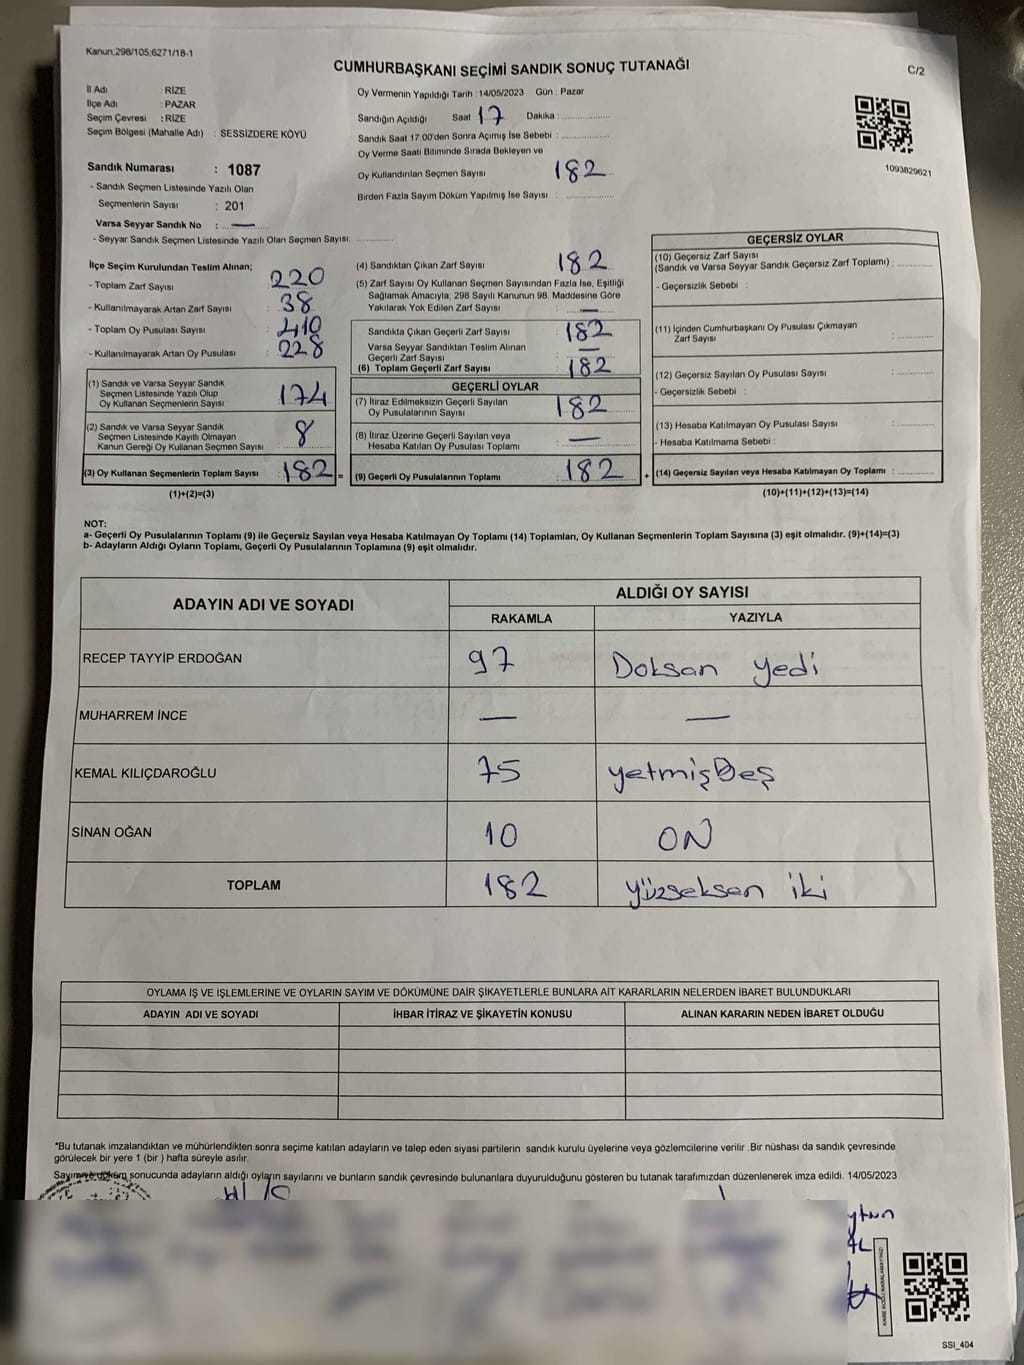 Kanun,298/105,6271/18-1
CUMHURBAŞKANI SEÇİMİ SANDIK SONUÇ TUTANAĞI
C/2
İl Adı : RİZE
İlçe Adı : PAZAR
Seçim Çevresi : RİZE
Seçim Bölgesi (Mahalle Adı) : SESSİZDERE KÖYÜ
Sandık Numarası : 1087
- Sandık Seçmen Listesinde Yazılı Olan
Seçmenlerin Sayısı : 201
Varsa Seyyar Sandık No : —
- Seyyar Sandık Seçmen Listesinde Yazılı Olan Seçmen Sayısı: ..............
Oy Vermenin Yapıldığı Tarih : 14/05/2023 Gün : Pazar
Sandığın Açıldığı Saat : 17 Dakika : ..............
Sandık Saat 17:00'den Sonra Açımış İse Sebebi : ..............
Oy Verme Saati Bitiminde Sırada Bekleyen ve
Oy Kullandırılan Seçmen Sayısı : 182
Birden Fazla Sayım Döküm Yapılmış İse Sayısı : ..............
1093829621
İlçe Seçim Kurulundan Teslim Alınan;
- Toplam Zarf Sayısı : 220
- Kullanılmayarak Artan Zarf Sayısı : 38
- Toplam Oy Pusulası Sayısı : 410
- Kullanılmayarak Artan Oy Pusulası : 228
(1) Sandık ve Varsa Seyyar Sandık
Seçmen Listesinde Yazılı Olup
Oy Kullanan Seçmenlerin Sayısı : 174
(2) Sandık ve Varsa Seyyar Sandık
Seçmen Listesinde Kayıtlı Olmayan
Kanun Gereği Oy Kullanan Seçmen Sayısı : 8
(3) Oy Kullanan Seçmenlerin Toplam Sayısı : 182 =
(1)+(2)=(3)
(4) Sandıktan Çıkan Zarf Sayısı : 182
(5) Zarf Sayısı Oy Kullanan Seçmen Sayısından Fazla İse, Eşitliği
Sağlamak Amacıyla, 298 Sayılı Kanunun 98. Maddesine Göre
Yakılarak Yok Edilen Zarf Sayısı : —
Sandıkta Çıkan Geçerli Zarf Sayısı : 182
Varsa Seyyar Sandıktan Teslim Alınan
Geçerli Zarf Sayısı : —
(6) Toplam Geçerli Zarf Sayısı : 182
GEÇERLİ OYLAR
(7) İtiraz Edilmeksizin Geçerli Sayılan
Oy Pusulalarının Sayısı : 182
(8) İtiraz Üzerine Geçerli Sayılan veya
Hesaba Katılan Oy Pusulası Toplamı : —
(9) Geçerli Oy Pusulalarının Toplamı : 182 +
GEÇERSİZ OYLAR
(10) Geçersiz Zarf Sayısı
(Sandık ve Varsa Seyyar Sandık Geçersiz Zarf Toplamı) : ..............
- Geçersizlik Sebebi :
(11) İçinden Cumhurbaşkanı Oy Pusulası Çıkmayan
Zarf Sayısı : ..............
(12) Geçersiz Sayılan Oy Pusulası Sayısı : ..............
- Geçersizlik Sebebi :
(13) Hesaba Katılmayan Oy Pusulası Sayısı : ..............
- Hesaba Katılmama Sebebi :
(14) Geçersiz Sayılan veya Hesaba Katılmayan Oy Toplamı : ..............
(10)+(11)+(12)+(13)=(14)
NOT:
a- Geçerli Oy Pusulalarının Toplamı (9) ile Geçersiz Sayılan veya Hesaba Katılmayan Oy Toplamı (14) Toplamları, Oy Kullanan Seçmenlerin Toplam Sayısına (3) eşit olmalıdır. (9)+(14)=(3)
b- Adayların Aldığı Oyların Toplamı, Geçerli Oy Pusulalarının Toplamına (9) eşit olmalıdır.
ADAYIN ADI VE SOYADI
ALDIĞI OY SAYISI
RAKAMLA YAZIYLA
RECEP TAYYİP ERDOĞAN 97 Doksan yedi
MUHARREM İNCE — —
KEMAL KILIÇDAROĞLU 75 yetmişBeş
SİNAN OĞAN 10 ON
TOPLAM 182 yüzseksen iki
OYLAMA İŞ VE İŞLEMLERİNE VE OYLARIN SAYIM VE DÖKÜMÜNE DAİR ŞİKAYETLERLE BUNLARA AİT KARARLARIN NELERDEN İBARET BULUNDUKLARI
ADAYIN ADI VE SOYADI İHBAR İTİRAZ VE ŞİKAYETİN KONUSU ALINAN KARARIN NEDEN İBARET OLDUĞU
*Bu tutanak imzalandıktan ve mühürlendikten sonra seçime katılan adayların ve talep eden siyasi partilerin sandık kurulu üyelerine veya gözlemcilerine verilir .Bir nüshası da sandık çevresinde
görülecek bir yere 1 (bir ) hafta süreyle asılır.
Sayım ve döküm sonucunda adayların aldığı oyların sayılarını ve bunların sandık çevresinde bulunanlara duyurulduğunu gösteren bu tutanak tarafımızdan düzenlenerek imza edildi. 14/05/2023
KARE KODU KARALAMAYINIZ!
SSI_404